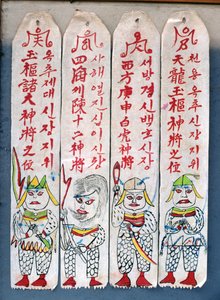 천용옥추신장지위
天龍玉樞神將之位
서방경신백호신장
西方庚申白虎神將
사해열지신이신장
四海列陳十二神將
옥추제대신장지위
玉樞諸大神將之位